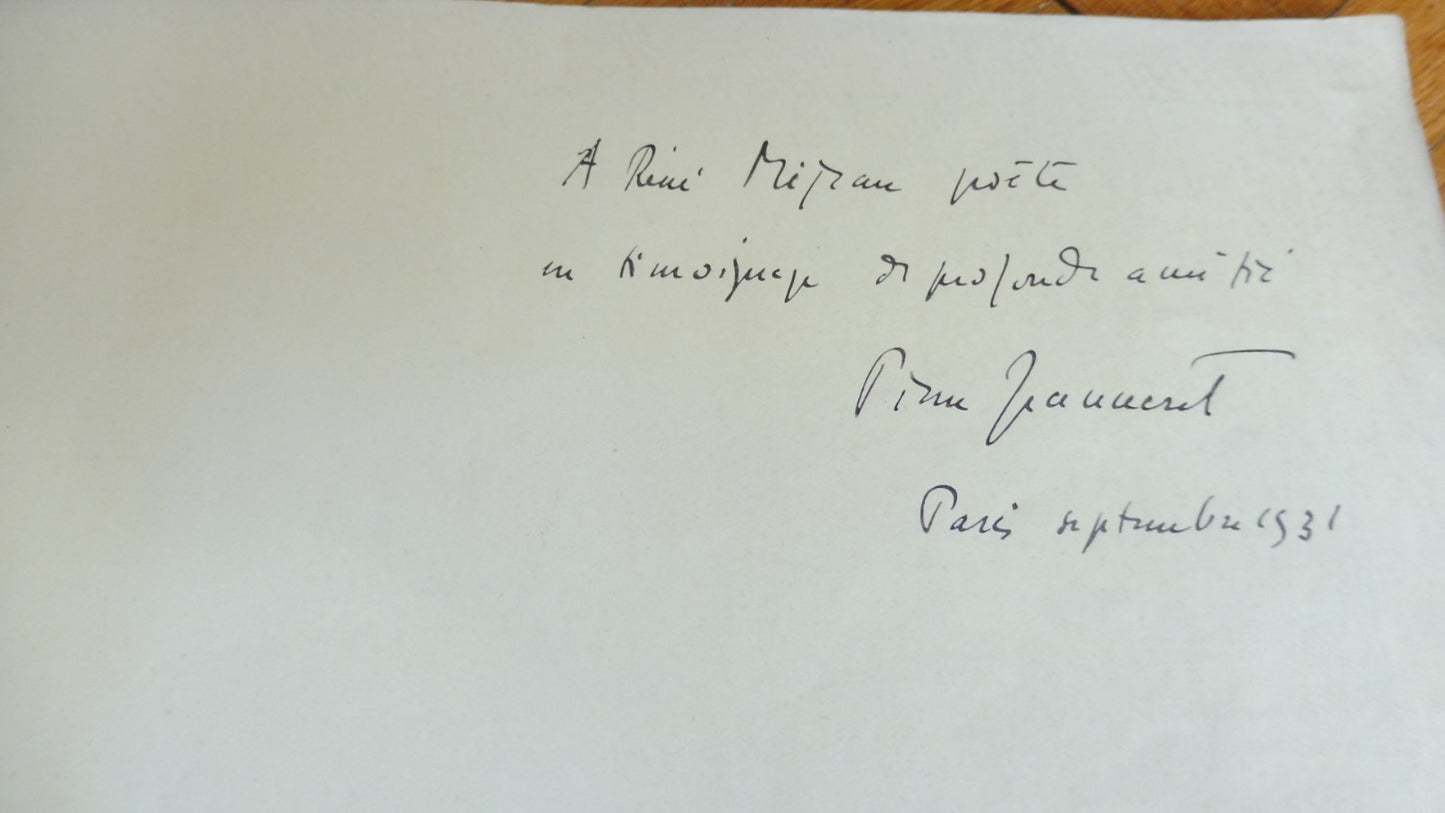 A René Mejean poète
en témoignage de profonde amitié
Pierre Jeanneret
Paris septembre 1931